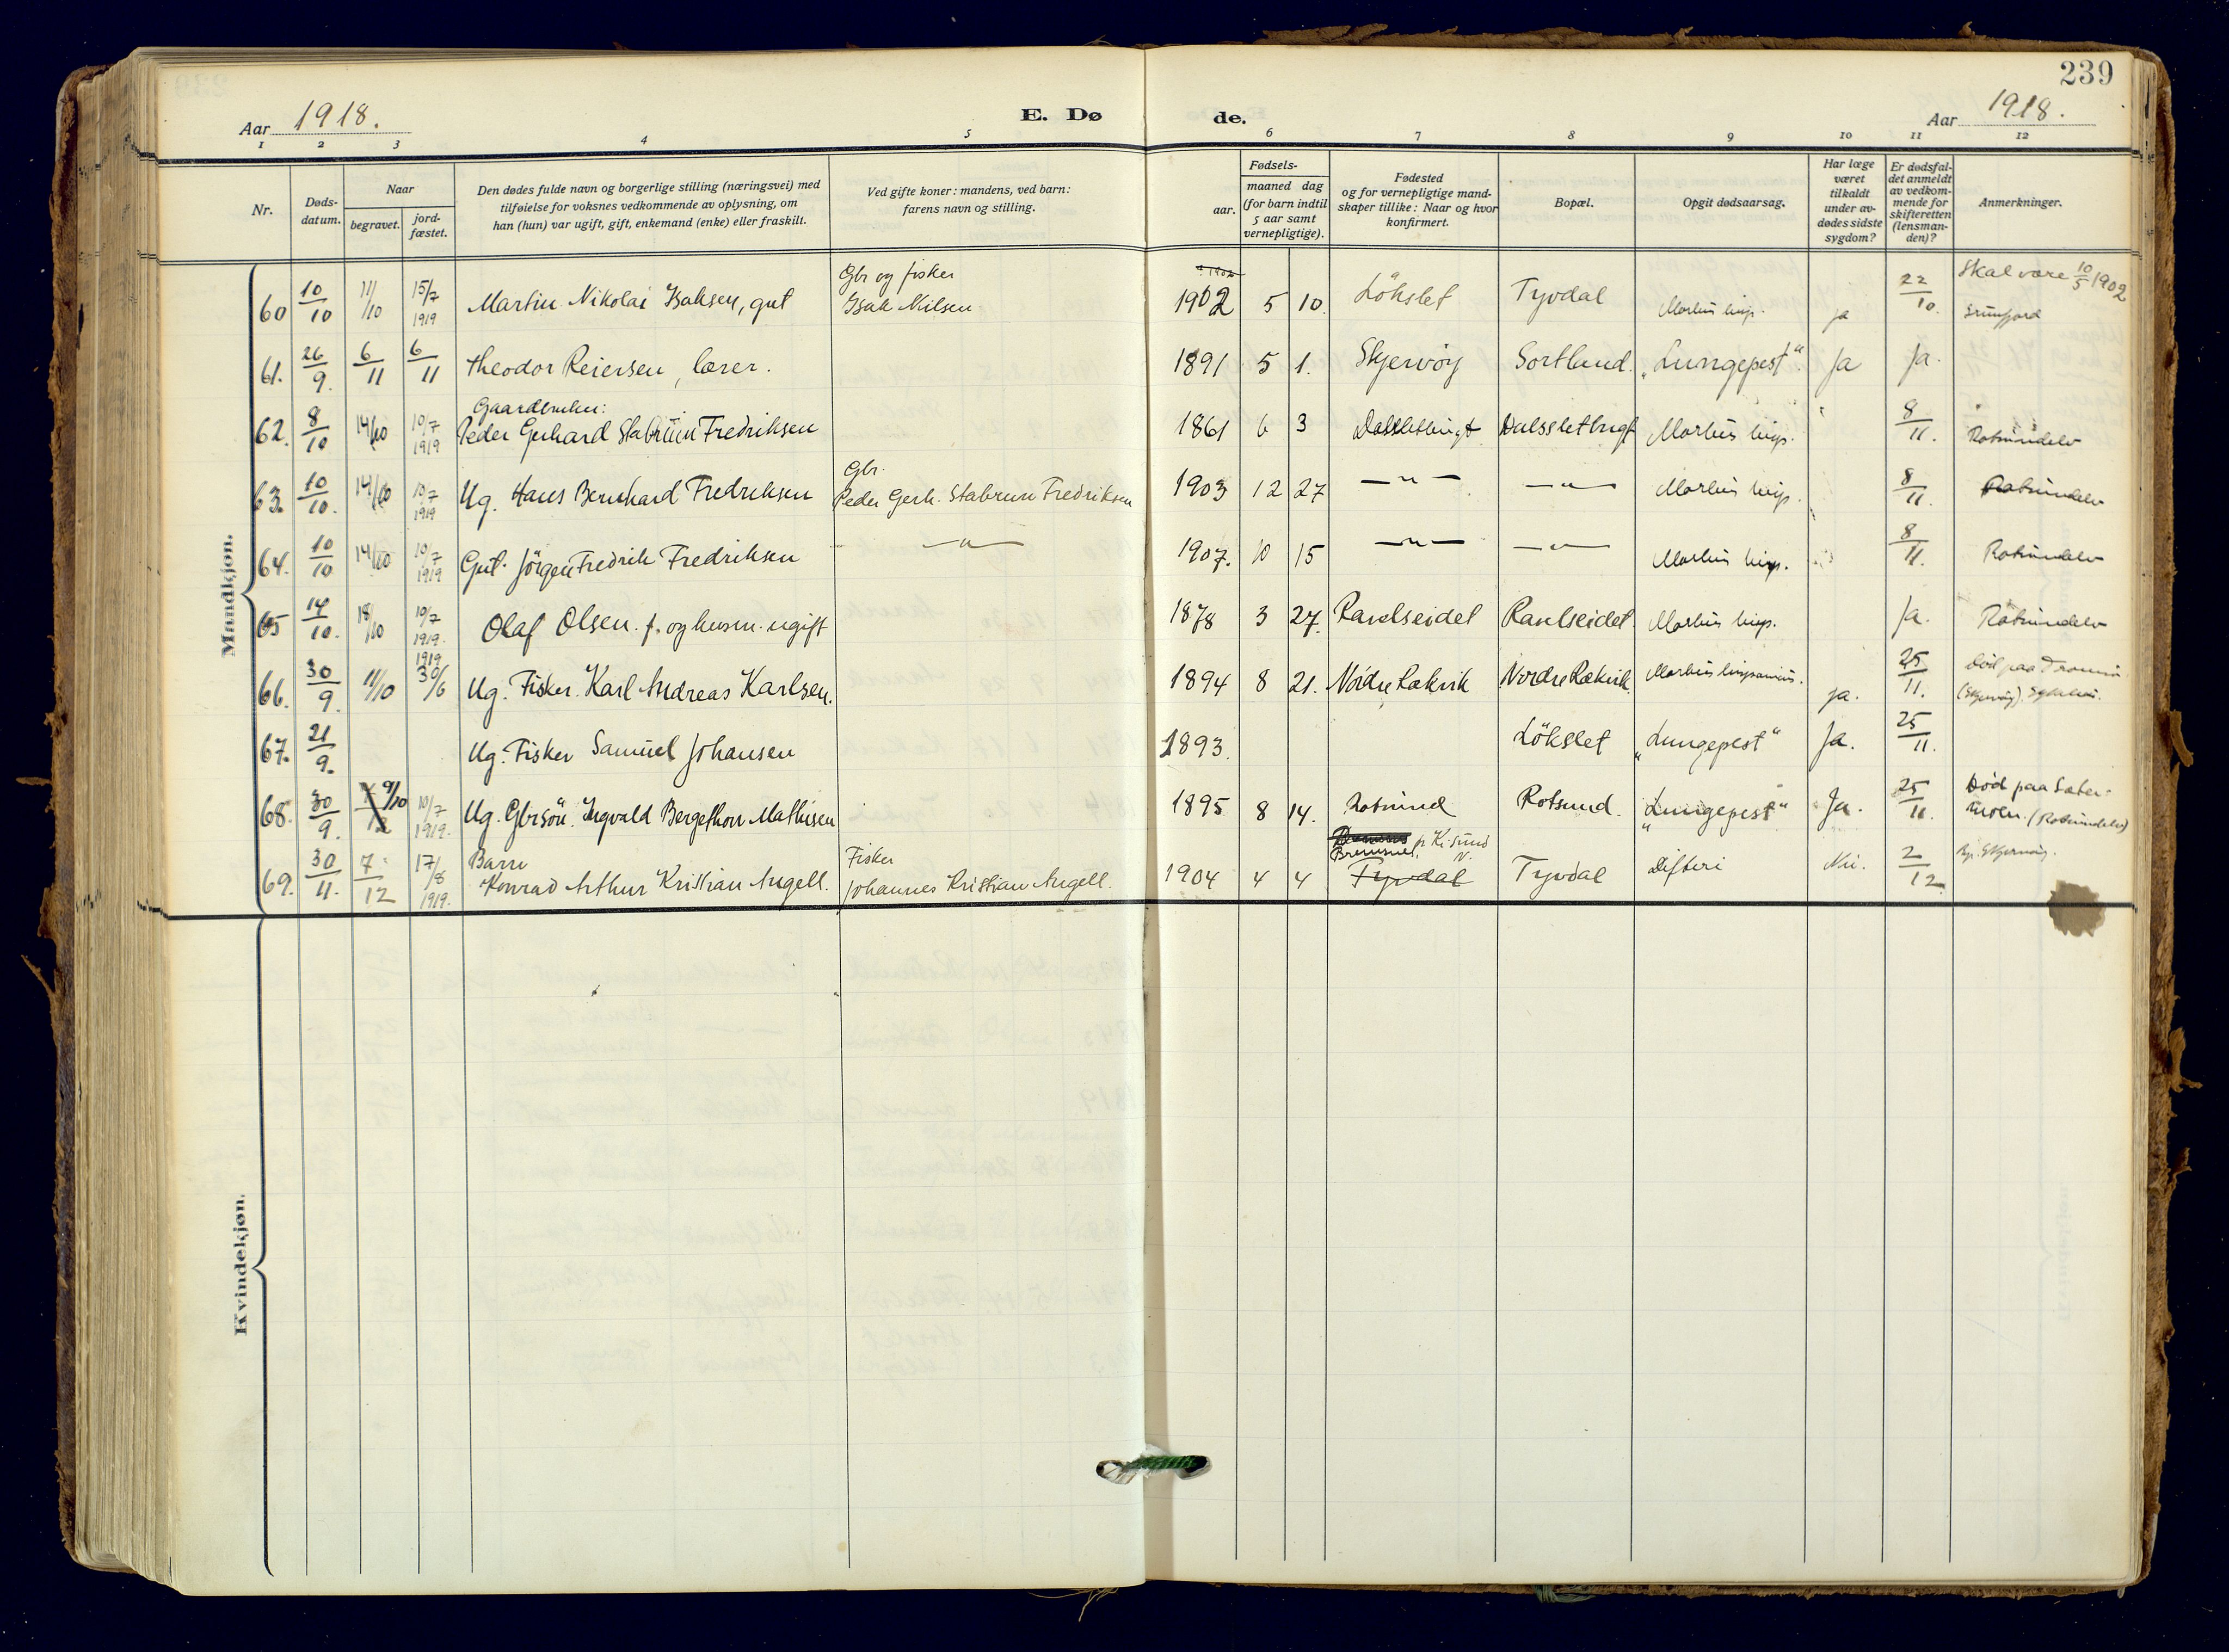 239
Aar 1918. E. Dø de. Aar 1918.
1 2 3 4 5 6 7 8 9 10 11 12
Nr.
Døds-
datum.
Naar
begravet.
jord-
fæstet.
Den dødes fulde navn og borgerlige stilling (næringsvei) med
tilføielse for voksnes vedkommende av oplysning, om
han (hun) var ugift, gift, enkemand (enke) eller fraskilt.
Ved gifte koner: mandens, ved barn:
farens navn og stilling.
Fødsels-
aar.
maaned dag
(for barn indtil
5 aar samt
vernepligtige).
Fødested
og for vernepligtige mand-
skaper tillike: Naar og hvor
konfirmert.
Bopæl.
Opgit dødsaarsag.
Har læge
været
tilkaldt
under av-
dødes sidste
sygdom?
Er dødsfal-
det anmeldt
av vedkom-
mende for
skifteretten
(lensman-
den)?
Anmerkninger.
Mandkjøn.
Gbr og fisker 1902 Skal være 10/5 1902
60 10/10 11/10 15/7 1919 Martin Nikolai Isaksen, gut Isak Nilsen 1902 5 10. Løkslet Tyvdal Morbus ja 22/10.
61. 26/9. 6/11 6/11 Theodor Reiersen, lærer. 1891 5 1. Skjervøy Sortland. „Lungepest“. Ja Ja.
Gaardbruker:
62. 8/10 14/10 10/7 1919 Peder Gerhard Stabrun Fredriksen 1861 6 3 Dalssletbugt Morbus 8/11. Rotsundelv
Gbr.
63. 10/10. 14/10 10/7 1919 Ug. Hans Bernhard Fredriksen Peder Gerh. Stabrun Fredriksen 1903 12 27 —"— —"— Morbus 8/11. Rotsundelv
64. 10/10 14/10 10/7 1919 Gut. Jörgen Fredrik Fredriksen —"— 1907. 10 15 —"— —"— Morbus 8/11. Rotsundelv
65 14/10. 18/10 10/7 1919. Olaf Olsen. f. og husm. ugift 1878 3 27. Ravelseidet Ravelseidet Morbus Ja. Rotsundelv
66. 30/9. 11/10 1919 30/6 Ug. Fisker. Karl Andreas Karlsen. 1894 8 21. Nördre Rækvik Nordre Rækvik. Morbus ja. 25/11. Död paa (Skjervöy)
67. 21/9. Ug. Fisker Samuel Johansen 1893. Lökslet „Lungepest“ Ja. 25/11.
68. 30/9. 9/10 10/7 1919. Ug. Gbrsön. Ingvald Bergethon Mathisen 1895 8 14. Rotsund Rotsund. „Lungepest“ Ja. 25/11. Död paa (Rotsundelv)
Barn Fisker Bremsnes
69. 30/11. 7/12 17/8 1919. Konrad Arthur Kristian Angell. Johannes Kristian Angell. 1904 4 4 Tyvdal Tyvdal Difteri Nei. 2/12 Skjervöy.
Kvindekjøn.